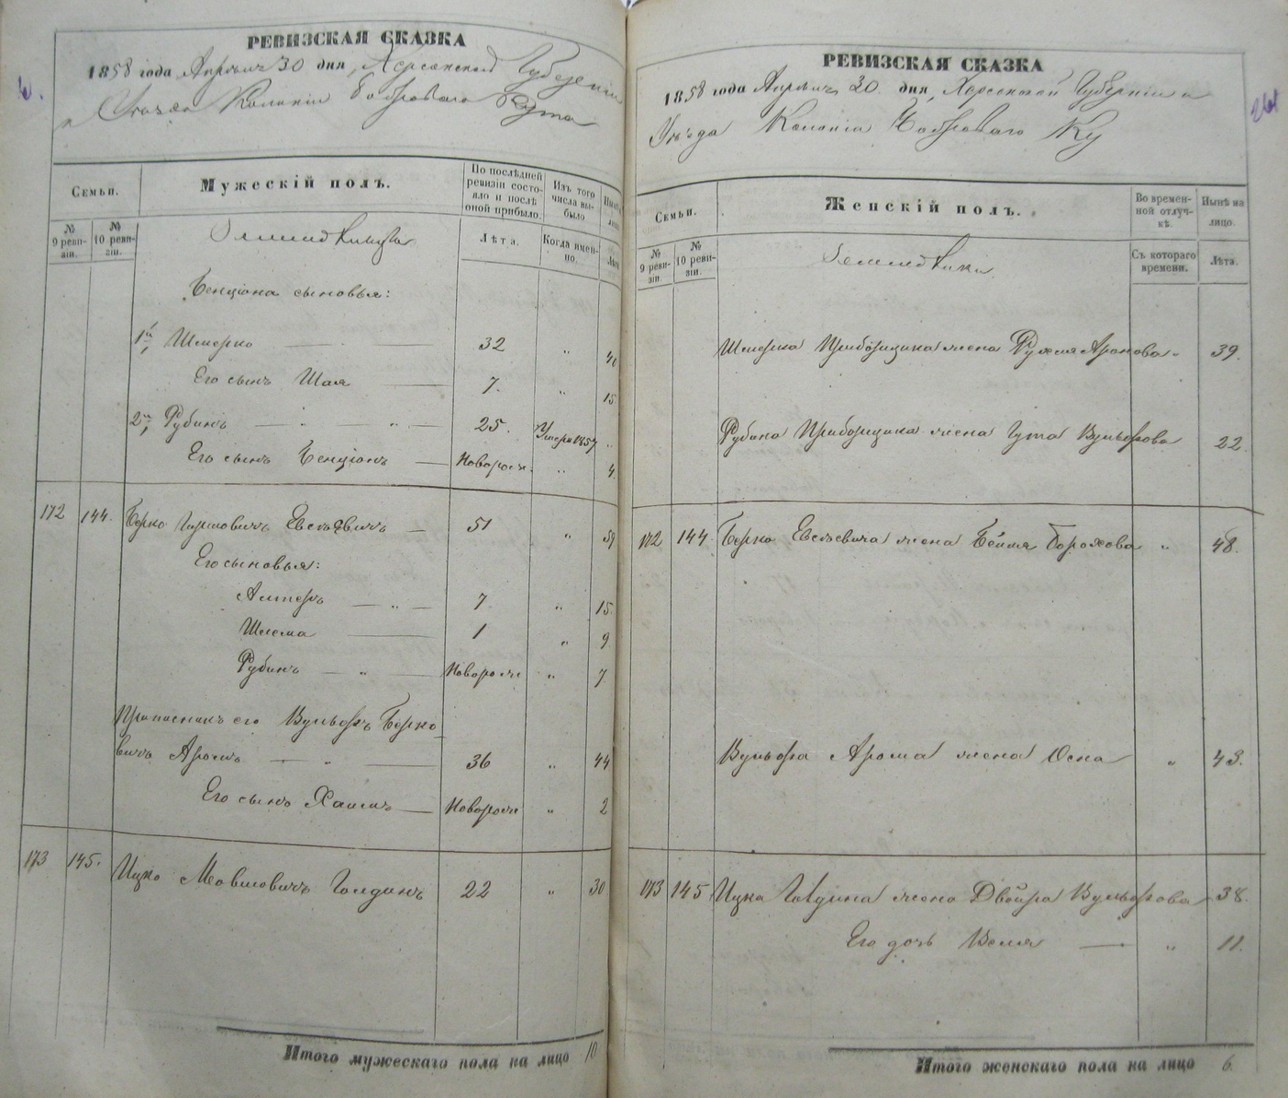 РЕВИЗСКАЯ СКАЗКА
1858 года Апрѣля 30 дня, Херсонской Губерніи
Колоніи Боброваго Кута
Семьи.
Мужескій полъ.
По послѣдней ревизіи состояло и послѣ оной прибыло.
Изъ того числа выбыло.
№ 9 ревизіи.
№ 10 ревизіи.
Лѣта.
Когда именно.
Бенціона сыновья:
1й, Шмерко 32 " 40
Его сынъ Шая 7. " 15
2й, Рубинъ 25. Умеръ 1857 "
Его сынъ Бенціонъ Новорож. " 4.
172 144. Берко Гиршовичъ 51 " 59
Его сыновья:
Алтеръ 7 " 15.
Шлема 1 " 9
Рубинъ Новорож " 7
его Вульфъ Берко
вичъ Аронъ 36 " 44
Его сынъ Хаимъ Новорож " 2
173 145. Ицко Мовшовичъ Голдинъ 22 " 30
Итого мужескаго пола на лицо 10
РЕВИЗСКАЯ СКАЗКА
1858 года Апрѣля 30 дня, Херсонской Губерніи и
Уѣзда Колоніи Боброваго Ку
Семьи.
Женскій полъ.
Во временной отлучкѣ.
Нынѣ на лицо.
№ 9 ревизіи.
№ 10 ревизіи.
Съ котораго времени.
Лѣта.
Шмерка жена Аронова 39.
Рубина жена Гута Вульфова 22
172 144 Берко жена Бейля Борохова " 48.
Вульфа Арона жена Осна " 43.
173 145 Ицка Голдина жена Двойра Вульфова 38.
Его дочь Веля " 11.
Итого женскаго пола на лицо 6.